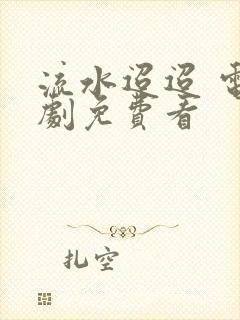 流水迢迢 電
劇免費看
扎空